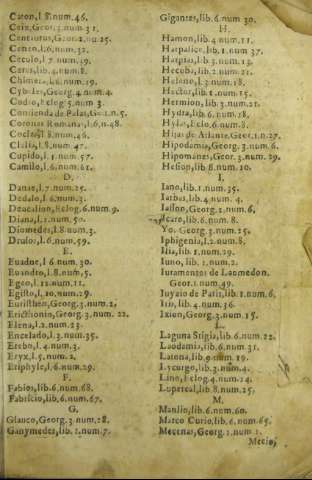 Caton, l.8.num.46.
Ceix, Georg.3.num.31.
Centauros, Geor.2.nu.25.
Ceneo, l.6.num.32.
Ceculo, l.7.num.39.
Ceres, lib.4.num.8.
Chimera, lib.6.num.39.
Cybeles, Georg.4.num.4.
Codro, Eclog.5.num.3.
Contienda de Palas, Geo.1.n.5.
Coronas Romanas, l.6.n.48.
Cocles, l.8.num.46.
Clelia, l.8.num.47.
Cupido, l.1.num.57.
Camilo, l.6.num.61.
D.
Danae, l.7.num.25.
Dedalo, l.6.num.3.
Deucalion, Eclog.6.num.9.
Diana, l.1.num.50.
Diomedes, l.8.num.3.
Drusos, l.6.num.59.
E.
Euadne, l.6.num.30.
Euandro, l.8.num.5.
Egeo, l.12.num.11.
Egisto, l.10.num.29.
Euristhen, Georg.3.num.2.
Ericthonio, Georg.3.num. 22.
Elena, l.2.num.23.
Encelado, l.3.num.35.
Erebo, l.4.num.3.
Eryx, l.5.num.2.
Eriphyle, l.6.num.29.
F.
Fabios, lib.6.num.68.
Fabricio, lib.6.num.67.
G.
Glauco, Georg.3.num.28.
Ganymedes, lib.1.num.7.
Gigantes, lib.6.num.30.
H.
Hamon, lib.4.num.11.
Harpalice, lib.1.num.37.
Harpias, lib.3.num.13.
Hecuba, lib.2.num.21.
Heleno, l.3.num.18.
Hector, lib.1.num.15.
Hermion, lib.3.num.21.
Hydra, lib.6.num.28.
Hylas, Eclo.6.num.8.
Hijas de Atlante, Geor.1.n.27.
Hipodamia, Georg.3.num.6.
Hipomanes, Geor.3.num.29.
Hesion, lib.8.num.10.
I.
Iano, lib.1.num.35.
Iarbas, lib.4.num.4.
Iason, Georg.2.num.6.
Icaro, lib.6.num.8.
Yo, Georg.3.num.25.
Iphigenia, l.2.num.8.
Ilia, lib.1.num.29.
Iuno, lib.1.num.2.
Iuramentos de Laomedon,
Geor.1.num.49.
Iuyzio de Paris, lib.1.num.6.
Iris, lib.4.num.36.
Ixion, Georg.3.num.15.
L.
Laguna Stigia, lib.6.num.22.
Laodamia, lib.6.num.31.
Latona, lib.9.num.19.
Lycurgo, lib.3.num.4.
Lino, Eclog.4.num.24.
Lupercal, lib.8.num.25.
M.
Manlio, lib.6.num.60.
Marco Curio, lib.6.num.65.
Mecenas, Georg.1.num.1.
Mecio,